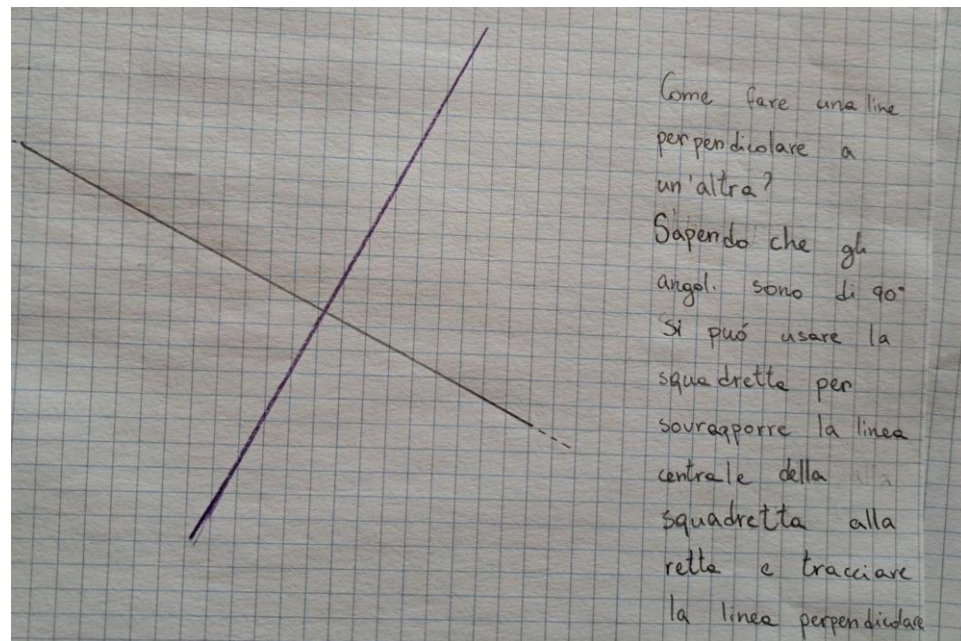 Come fare una line
perpendicolare a
un'altra?
Sapendo che gli
angoli sono di 90°
si può usare la
squadretta per
sovrapporre la linea
centrale della
squadretta alla
retta e tracciare
la linea perpendicolare